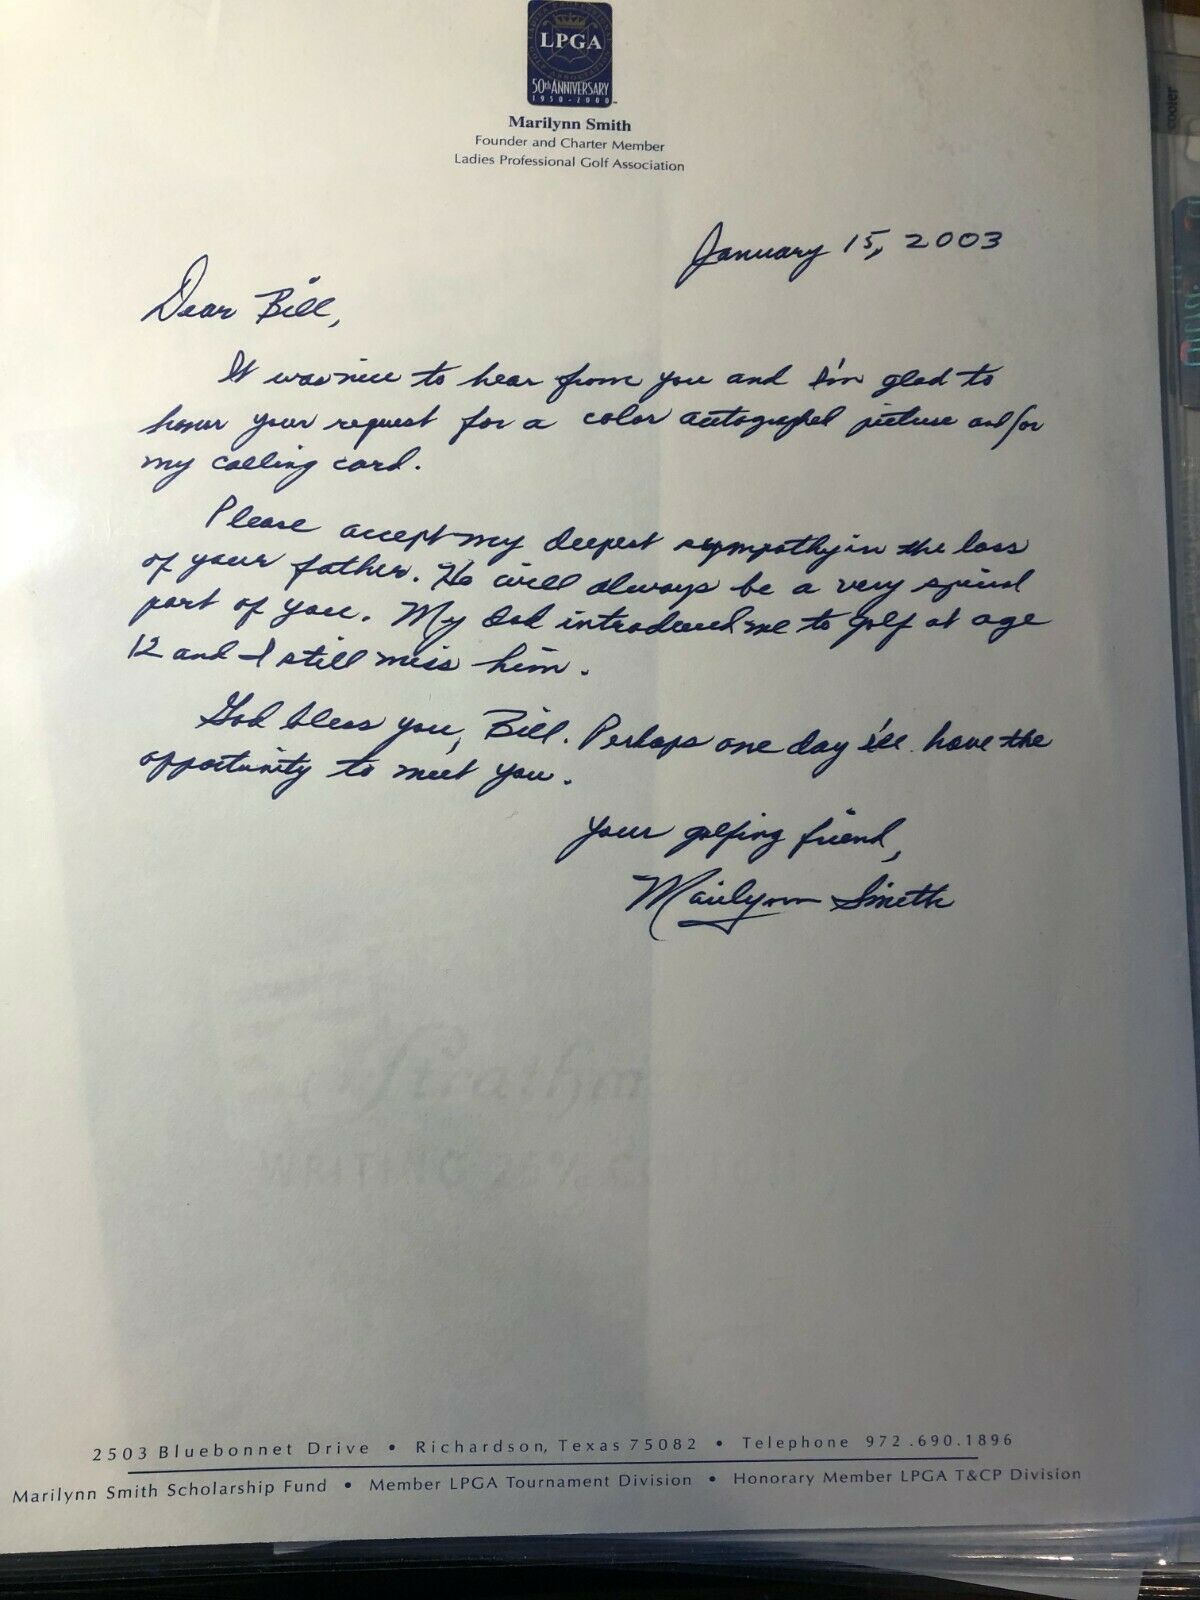 LPGA
50th ANNIVERSARY
1950-2000
Marilynn Smith
Founder and Charter Member
Ladies Professional Golf Association
January 15, 2003
Dear Bill,
It was nice to hear from you and I'm glad to
honor your request for a color autographed picture and/or
my calling card.
Please accept my deepest sympathy in the loss
of your father. He will always be a very special
part of you. My Dad introduced me to golf at age
12 and I still miss him.
God bless you, Bill. Perhaps one day I'll have the
opportunity to meet you.
Your golfing friend,
Marilynn Smith
Strathmore
WRITING 25% COTTON
2503 Bluebonnet Drive • Richardson, Texas 75082 • Telephone 972.690.1896
Marilynn Smith Scholarship Fund • Member LPGA Tournament Division • Honorary Member LPGA T&CP Division